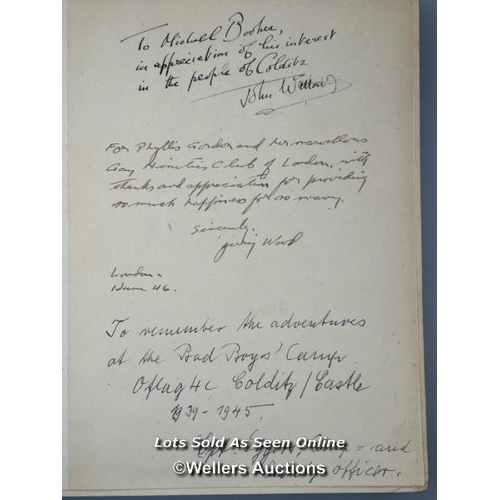 To Michael Booker,
in appreciation of his interest
in the people of Colditz.
John Watton
For Phyllis Gordon and her marvellous
Gay Nineties Club of London, with
thanks and appreciation for providing
so much happiness for so many.
Sincerely,
Jerry Wood
London -
June 46.
To remember the adventures
at the Bad Boys' Camp
Oflag 4c Colditz / Castle
1939 - 1945.
Cpt. Eggers, Camp = and
officer.
Lots Sold As Seen Online
©Wellers Auctions